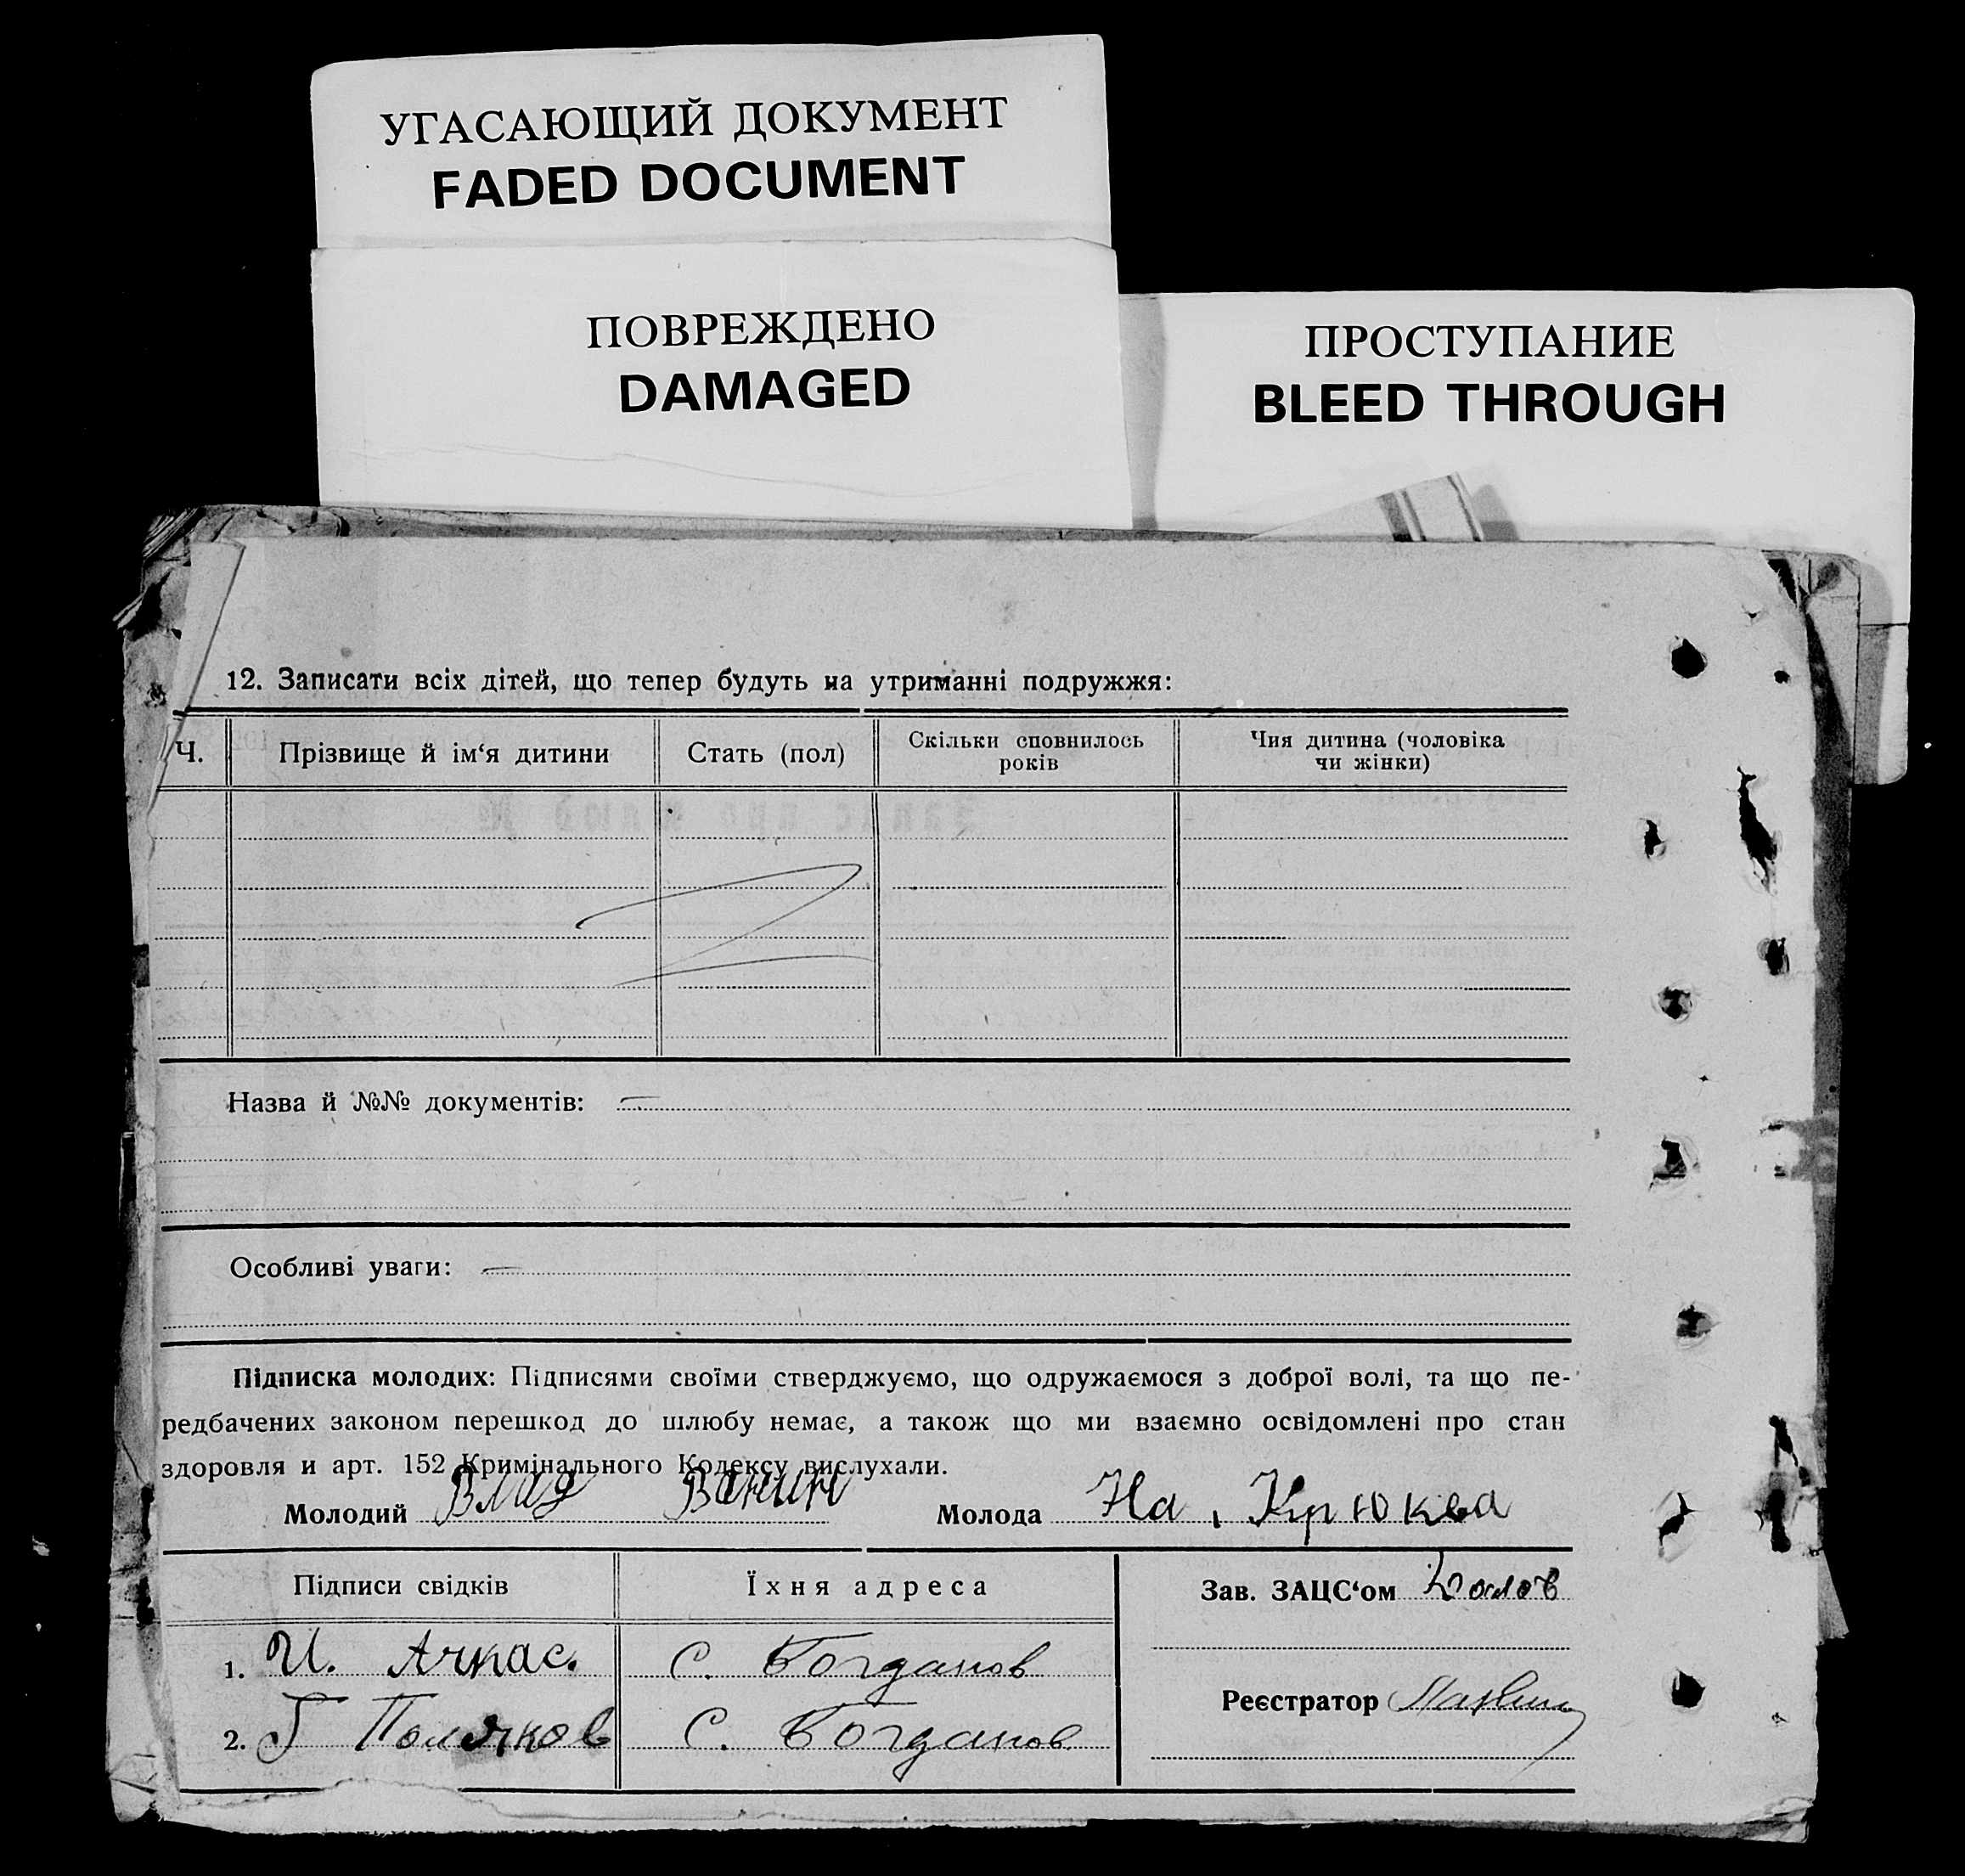 УГАСАЮЩИЙ ДОКУМЕНТ
FADED DOCUMENT
ПОВРЕЖДЕНО
DAMAGED
ПРОСТУПАНИЕ
BLEED THROUGH
12. Записати всіх дітей, що тепер будуть на утриманні подружжя:
Ч. Прізвище й ім‘я дитини Стать (пол) Скільки сповнилось років Чия дитина (чоловіка чи жінки)
Назва й №№ документів: —
Особливі уваги: —
Підписка молодих: Підписями своїми стверджуємо, що одружаємося з доброї волі, та що пе-
редбачених законом перешкод до шлюбу немає, а також що ми взаємно освідомлені про стан
здоровля и арт. 152 Кримінального Кодексу вислухали.
Молодий Влад Ванин Молода На, Крюква
Підписи свідків Їхня адреса Зав. ЗАЦС‘ом
1. И. Ачкас. С. Богданов
Реєстратор
2. Г Поляков С. Богданов